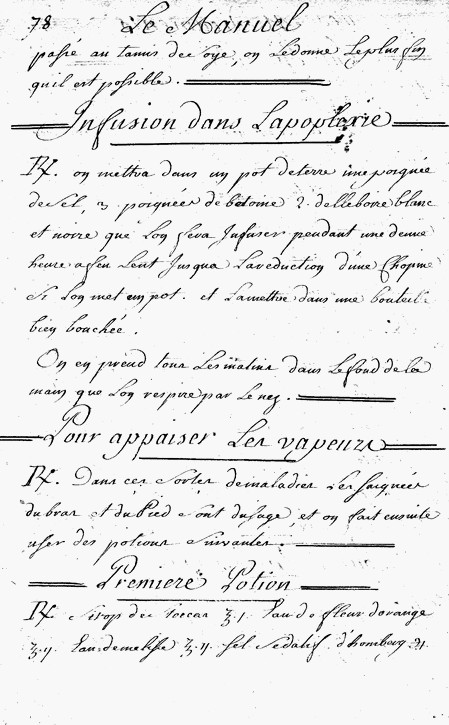 78 Le Manuel
passé au tamis de Soye, on Le donne Le plus fin
quil est possible.
Infusion dans Lapoplexie
R/. on mettra dans un pot de terre une poignée
de Sel, 3 poignées de bétoine 2. dellebore blanc
et noire que Lon fera Infuser pendant une demie
heure a feu Lent Jusqua La reduction d'une Chopine
Si Lon met un pot. et La mettre dans une bouteil:
bien bouchée.
On en prend tous Les matins dans Le fond de la
main que Lon respire par Le nez.
Pour appaiser Les vapeurs
R/. Dans ces Sortes de maladies Les saignées
du bras et du Pied Sont dusage, et on fait ensuite
user des potions Suivantes.
Premiere Potion
R/. Sirop de ℥.1. Eau de fleur dorange
℥.ij. Eau de melisse ℥.ij. sel Sedatif d'hombourg